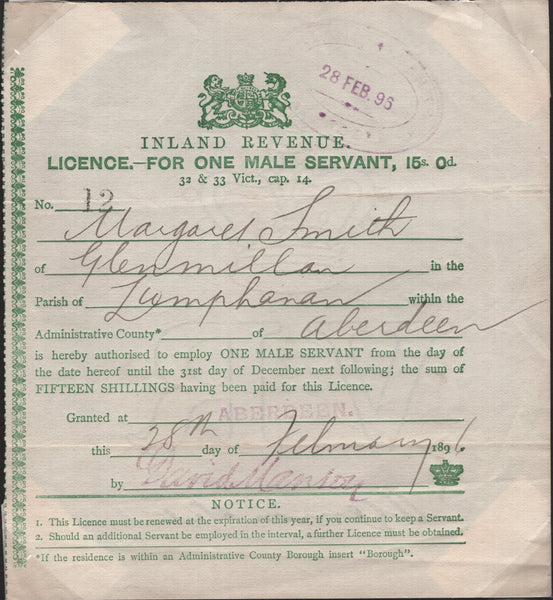 28 FEB. 96
INLAND REVENUE.
LICENCE.—FOR ONE MALE SERVANT, 15s. 0d.
32 & 33 Vict., cap. 14.
No. 12
Margaret Smith
of Glenmillan in the
Parish of Lumphanan within the
Administrative County* of Aberdeen
is hereby authorised to employ ONE MALE SERVANT from the day of
the date hereof until the 31st day of December next following; the sum of
FIFTEEN SHILLINGS having been paid for this Licence.
Granted at ABERDEEN.
this 28th day of February 1896.
by David Manson
NOTICE.
1. This Licence must be renewed at the expiration of this year, if you continue to keep a Servant.
2. Should an additional Servant be employed in the interval, a further Licence must be obtained.
*If the residence is within an Administrative County Borough insert "Borough".